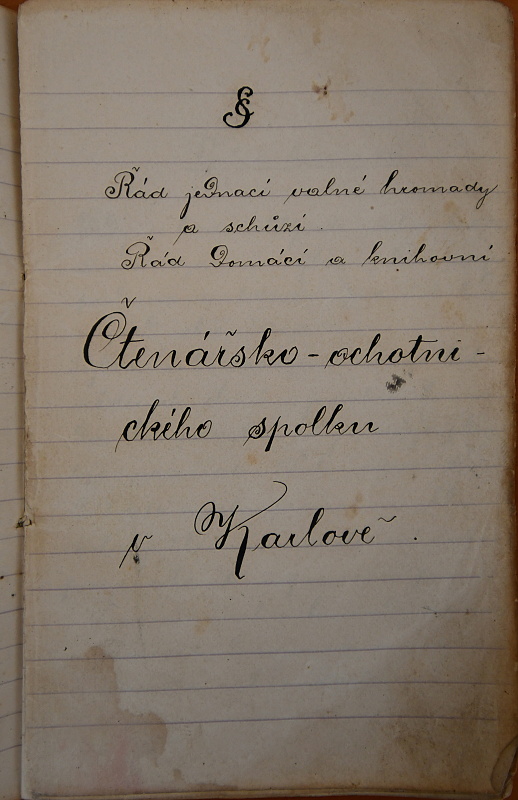 §
Řád jednací valné hromady
a schůzí.
Řád Domácí a knihovní
Čtenářsko-ochotni-
ckého spolku
v Karlově.